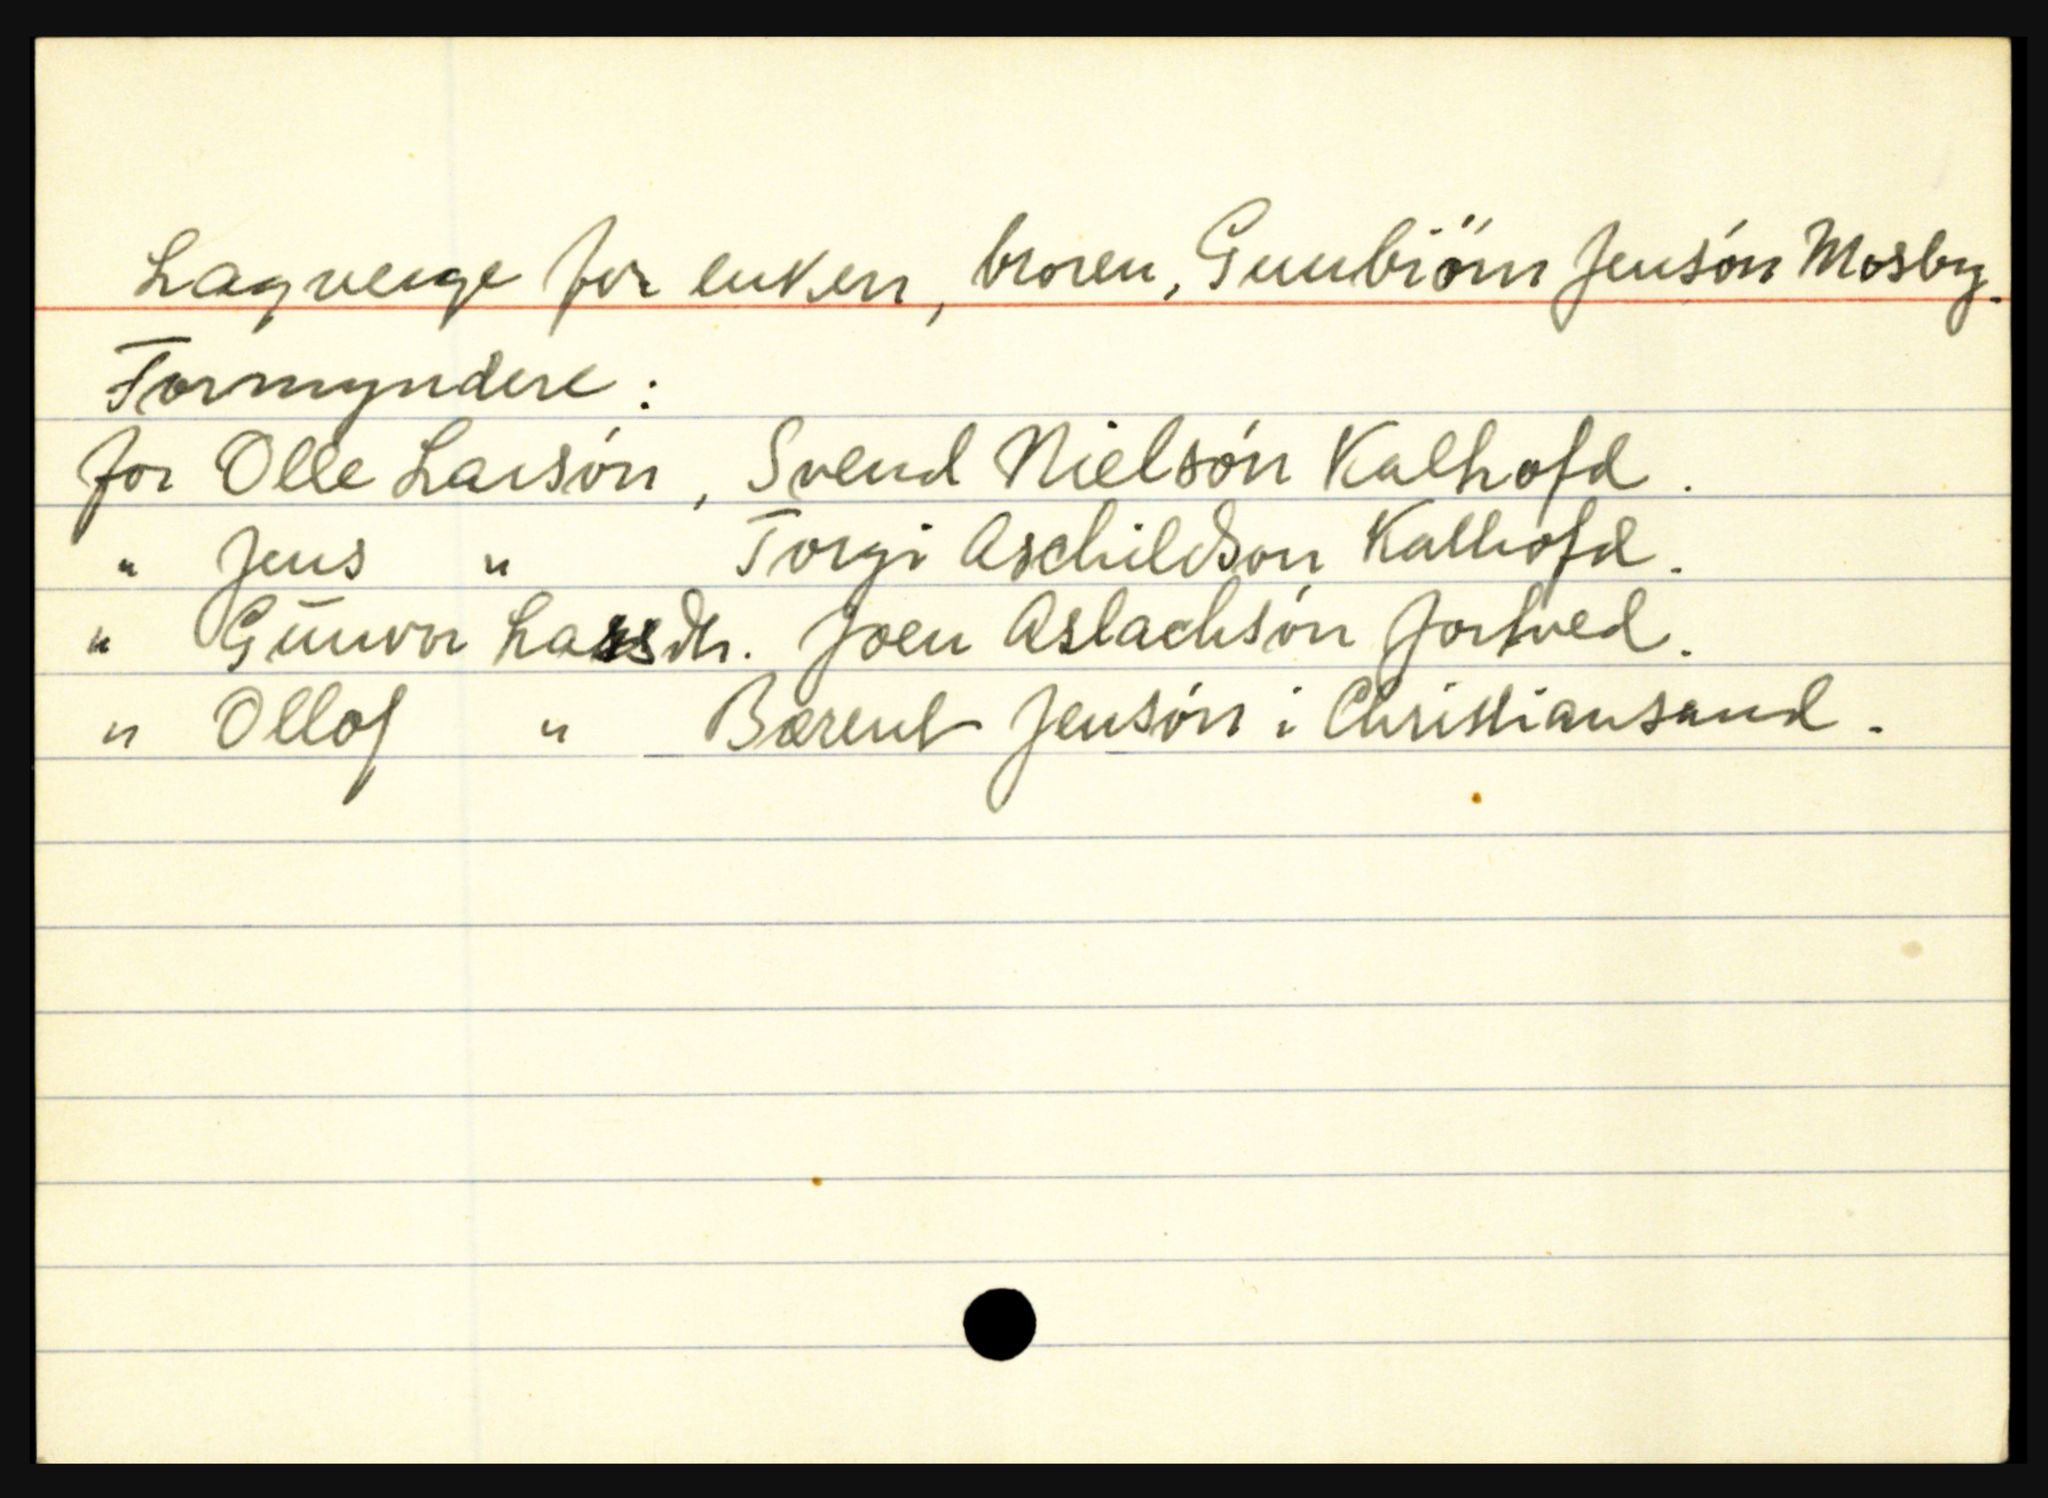 Lagverge for enken, broren, Gunbiörn Jensón Mosby.
Formyndere:
for Olle Larsón, Svend Nielsón Kalhofd.
" Jens " Torgi Aschildson Kalhofd.
" Gunvor Larsdtr. Joen Aslachsón fortved.
" Ollof " Barent Jensón i Christiansand.